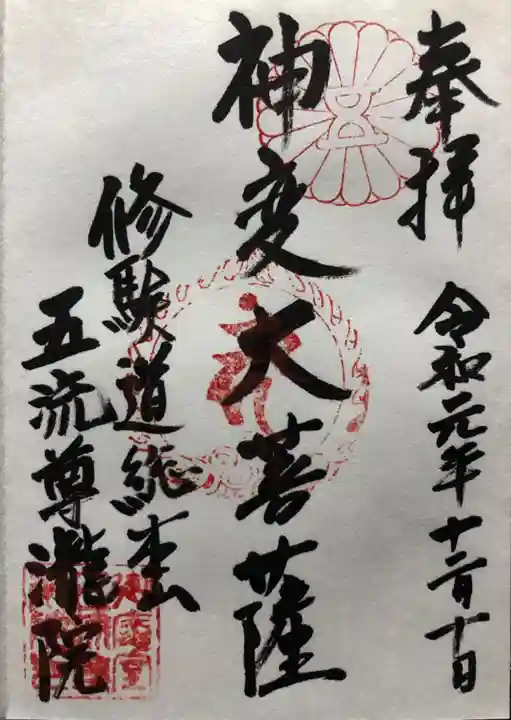 奉拝
令和元年十二月十日
神変大菩薩
修験道総本山
五流尊瀧院